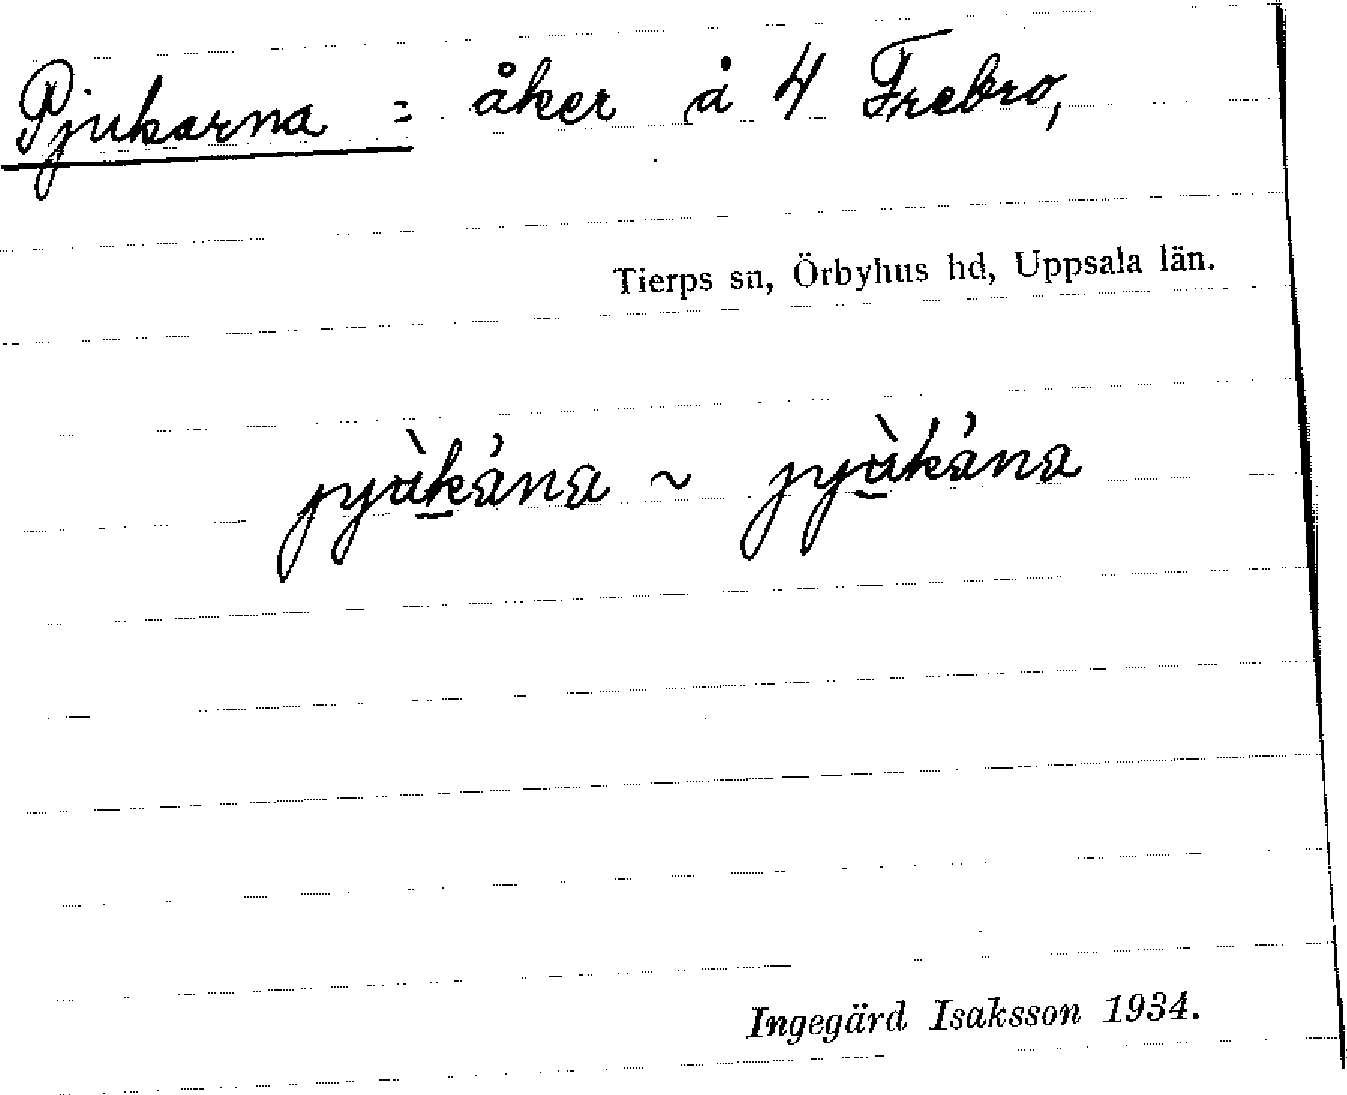 Pjukarna = åker å 4 Frebro,
Tierps sn, Örbyhus hd, Uppsala län.
pjùkána ~ pjùkána
Ingegärd Isaksson 1934.